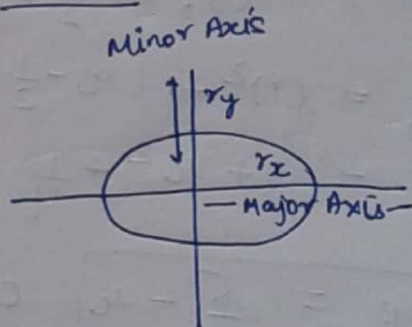 Minor Axis
ry
rx
Major Axis